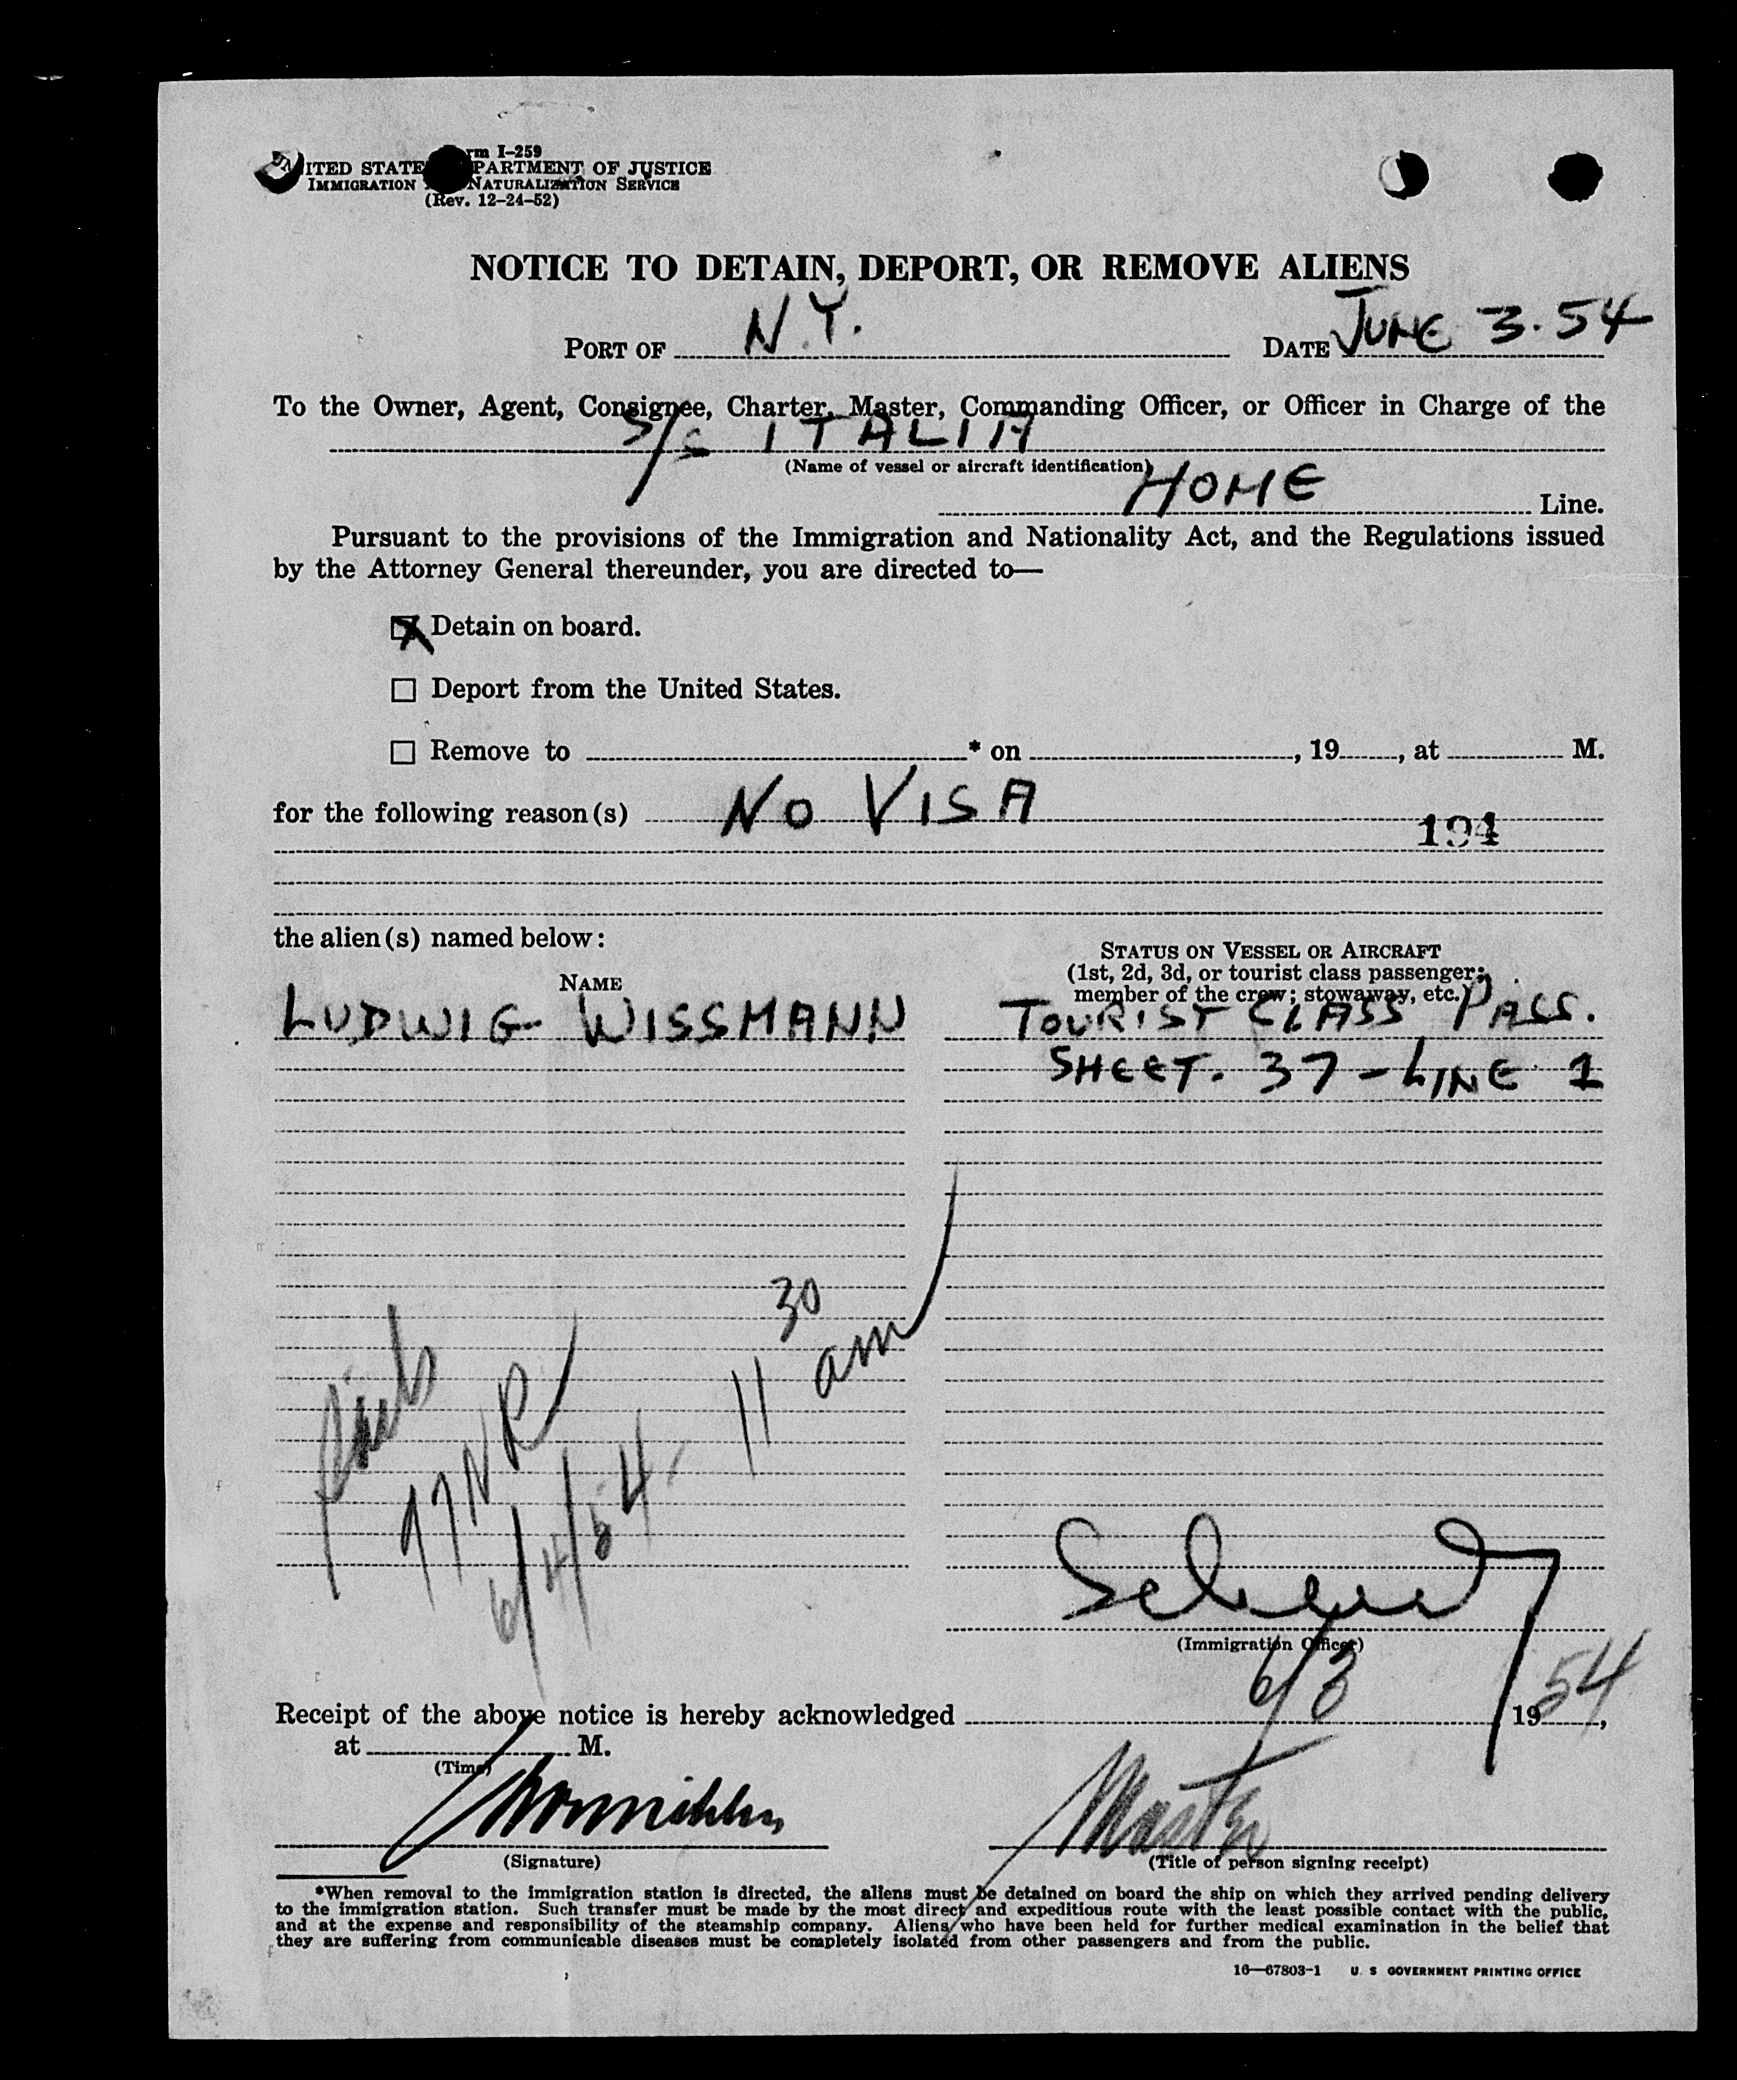 Form I-259
UNITED STATES DEPARTMENT OF JUSTICE
IMMIGRATION AND NATURALIZATION SERVICE
(Rev. 12-24-52)
NOTICE TO DETAIN, DEPORT, OR REMOVE ALIENS
PORT OF N.Y. DATE JUNE 3.54
To the Owner, Agent, Consignee, Charter, Master, Commanding Officer, or Officer in Charge of the
S/S ITALIA
(Name of vessel or aircraft identification)
HOME Line.
Pursuant to the provisions of the Immigration and Nationality Act, and the Regulations issued
by the Attorney General thereunder, you are directed to—
☒ Detain on board.
☐ Deport from the United States.
☐ Remove to * on , 19 , at M.
for the following reason(s) NO VISA
194
the alien(s) named below:
STATUS ON VESSEL OR AIRCRAFT
(1st, 2d, 3d, or tourist class passenger;
member of the crew; stowaway, etc.)
NAME
LUDWIG WISSMANN TOURIST CLASS PASS.
SHEET. 37 - LINE 1
11 30 am
97 NR
6/4/54
(Immigration Officer)
Receipt of the above notice is hereby acknowledged 6/3 1954,
at M.
(Time)
Master
(Signature) (Title of person signing receipt)
*When removal to the immigration station is directed, the aliens must be detained on board the ship on which they arrived pending delivery
to the immigration station. Such transfer must be made by the most direct and expeditious route with the least possible contact with the public,
and at the expense and responsibility of the steamship company. Aliens who have been held for further medical examination in the belief that
they are suffering from communicable diseases must be completely isolated from other passengers and from the public.
16—67803-1 U. S GOVERNMENT PRINTING OFFICE